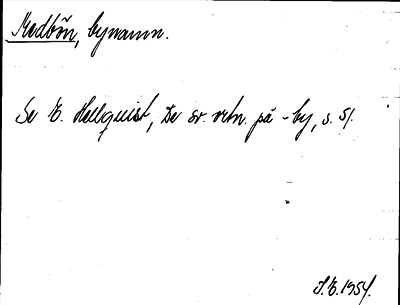 Medbön, bynamn.
Se E. Hellquist, De sv. ortn. på -by, s. 51.
J.E. 1954.